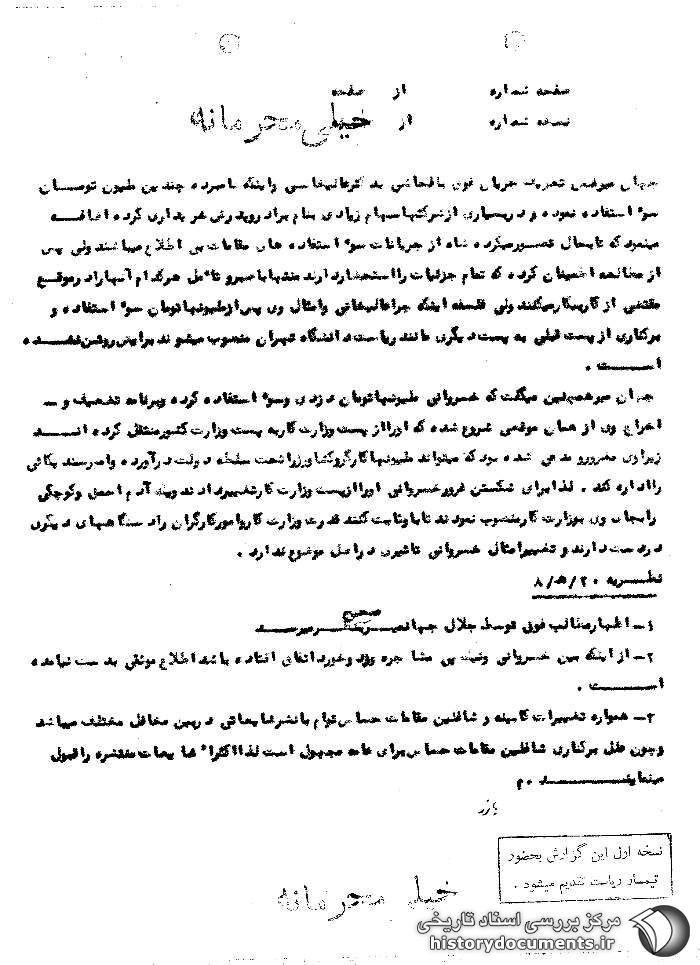 صفحه شماره از صفحه
نسخه شماره از
خیلی محرمانه
جهان میر ضمن تعریف جریان فوق با فحاشی به دکتر عالیخانی و اینکه نامبرده چندین ملیون تومان
سوء استفاده نموده و در بسیاری از شرکتها سهام زیادی بنام برادر و پدرش خریداری کرده اضافه
مینمود که تابحال تصور میکرده شاه از جریانات سوء استفاده های مقامات بی اطلاع میباشند ولی پس
از مطالعه اطمینان کرده که تمام جزئیات را استحضار دارند منتها با صبر و تأمل هر کدام آنها را در موقع
مقتضی از کار بیکار میکنند ولی فلسفه اینکه چرا عالیخانی و امثال وی پس از ملیونها تومان سوء استفاده و
برکناری از پست قبلی به پست دیگری مانند ریاست دانشگاه تهران منصوب میشوند برایش روشن نشده
است .
جهان میر همچنین میگفت که خسروانی ملیونها تومان دزدی و سوء استفاده کرده و برنامه تضعیف و ــ
اخراج وی از همان موقعی شروع شده که او را از پست وزارت کار به پست وزارت کشور منتقل کرده اند
زیرا وی مغرور و مدعی شده بود که میتواند ملیونها کارگر و کشاورز را تحت سلطه دولت درآورده و
را اداره کند . لذا برای شکستن غرور خسروانی او را از پست وزارت کار تغییر دادند و یک آدم احمق و کوچکی
را بجای وی بوزارت کار منصوب نمودند تا باو ثابت کنند قدرت وزارت کار و امور کارگران را دستگاههای دیگری
در دست دارند و تغییر امثال خسروانی تاثیری در اصل موضوع ندارد .
نظریه ۸/ھ/۲۰
۱ــ اظهار مطالب فوق توسط جلال جهانمیر صحیح بنظر میرسد
۲ــ از اینکه بین خسروانی و مشاجره و زد و خورد اتفاق افتاده باشد اطلاع موثقی بدست نیامده
است .
۳ــ همواره تغییرات کابینه و شاغلین مقامات حساس توام با نشر شایعاتی در بین محافل مختلف میباشد
و چون علل برکناری شاغلین مقامات حساس برای عامه مجهول است لذا اکثراً شایعات منتشره را قبول
مینمایند . م
نسخه اول این گزارش بحضور
تیمسار ریاست تقدیم میشود .
خیلی محرمانه
مرکز بررسی اسناد تاریخی
historydocuments.ir